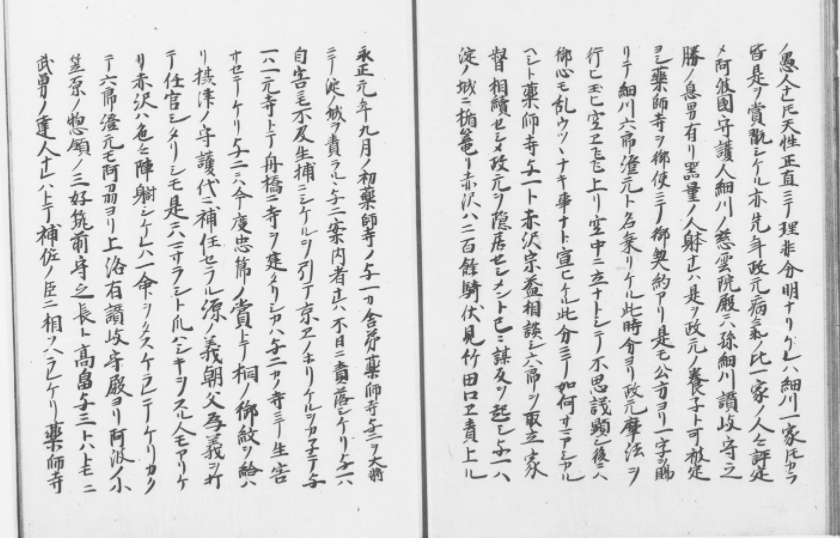 ノ愚人ナレ𪜈天性正直ニシテ理非分明ナリケレハ細川一家ヒカラ
皆是ヲ賞翫シケル亦先年政元病氣ノ比一家ノ人々評定
シメ阿波國守護人細川ノ慈雲院殿ニハ孫細川讃岐守之
勝ノ息男有リ器量ノ人躰ナレハ是ヲ政元ノ養子ト可被定
ヨシ薬師寺ヲ御使ニシテ御契約アリ是モ公方ヨリ一字ヲ賜
リテ細川六郎澄元ト名乗リケル此時分ヨリ政元魔法ヲ
行ヒ玉ヒ空ヱ飛上リ空中ニ立ナトシテ不思議顕シ後ニハ
御心モ乱ウツヽナキ事ナト宣ヒケル此分ニシテハ如何サニアシカル
ヘシト薬師寺与一ト赤沢宗益相談シ六郎ヲ取立家
督相續セシメ政元ヲ隠居セシメント已ニ謀反ヲ起シ与一ハ
淀ノ城ニ楯篭リ赤沢ハ二百餘騎伏見竹田口ヱ責上ル
永正元年九月ノ初薬師寺ノ与一カ舎弟薬師寺与二ヲ大将
ニテ淀ノ城ヲ責ラル与二案内者ナレハ不日ニ責落シケリ与一ハ
自害モ不及生捕ニシケルヲ引テ京ヱノホリケルヲカネテ与
一ハ一元寺トテ舟橋ニ寺ヲ建タリシカハ与二カノ寺ニテ生害
サセテケリ与二ニハ今度忠節ノ賞トテ桐ノ御紋ヲ給ハ
リ摂津ノ守護代ニ補任セラル源ノ義朝父為義ヲ打
テ任官シタリシモ是ニハマサラシト爪ハシキヲスル人モアリケ
リ赤沢ハ色々陣謝シケレハ一命ヲタスケラレテケリカク
テ六郎澄元モ阿刕ヨリ上洛有讃岐守殿ヨリ阿波ノ小
笠原ノ惣領ノ三好筑前守之長ト高畠与三トハトモニ
武勇ノ達人ナレハトテ補佐ノ臣ニ相ソヘラレケリ薬師寺